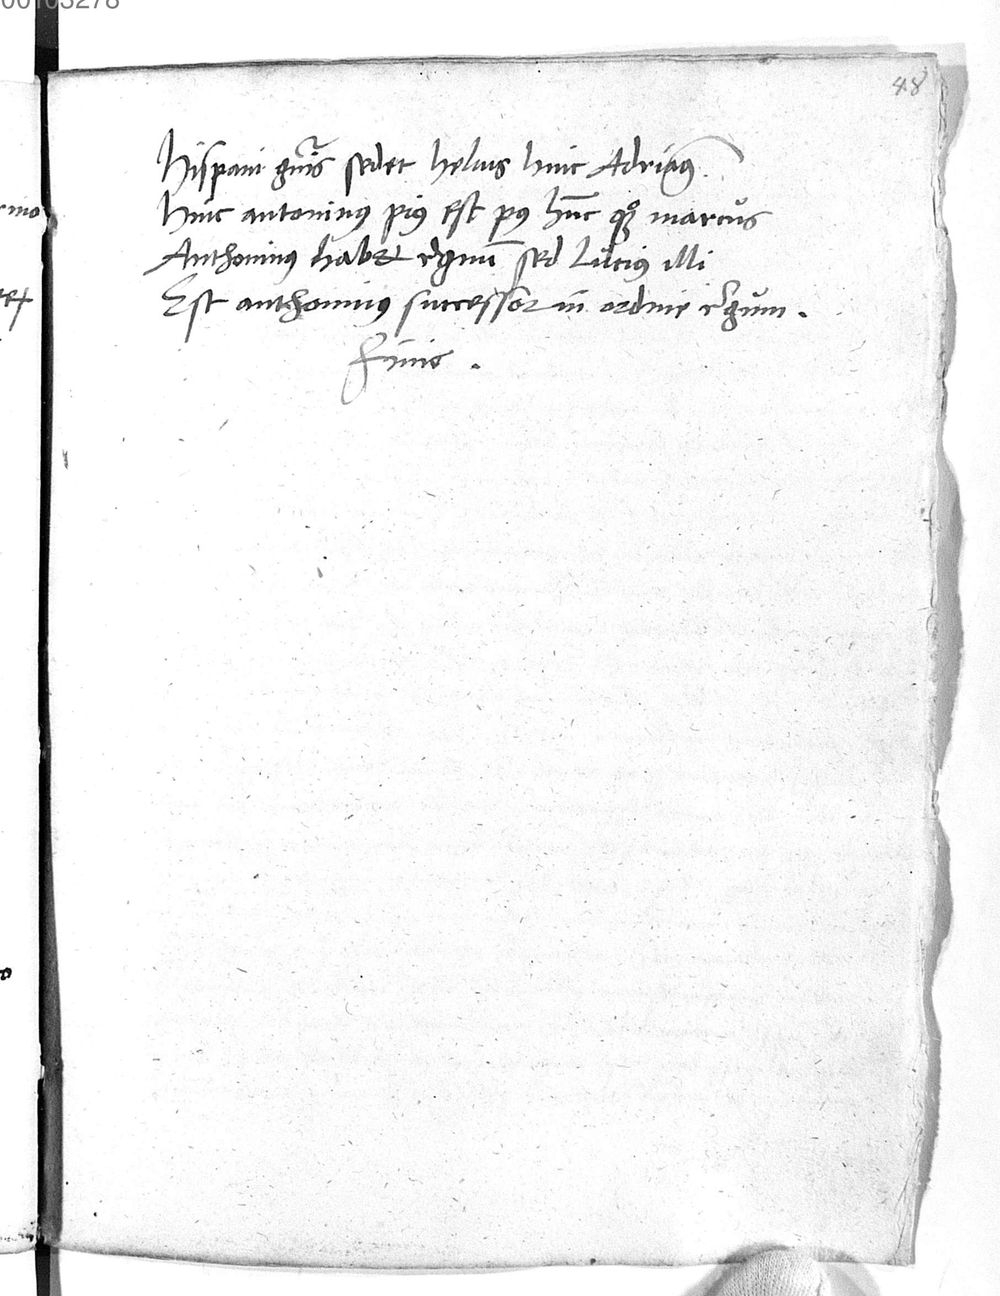 00103278
48
Hispani gn̄is sedet helius hinc Adrianꝰ.
Hinc antoninꝰ piꝰ est pꝰ hūc qͦꝫ marcus
Anthoninꝰ habet regnū sed Lucius illi
Est anthoninus successor in ordine regum.
Finis.
rmo
tex